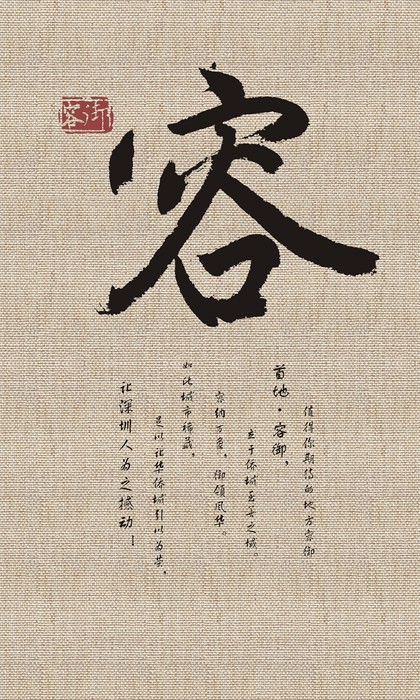 容
容御
值得你期待的地方容御
首地·容御，
立于侨城至尊之城。
容纳万象，御领风华。
如此城市稀藏，
足以让华侨城引以为荣，
让深圳人为之撼动！